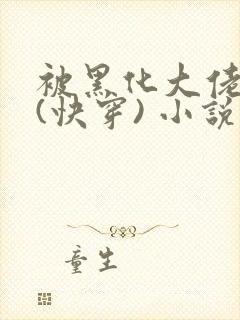 被黑化大佬
(快穿)小說
童生